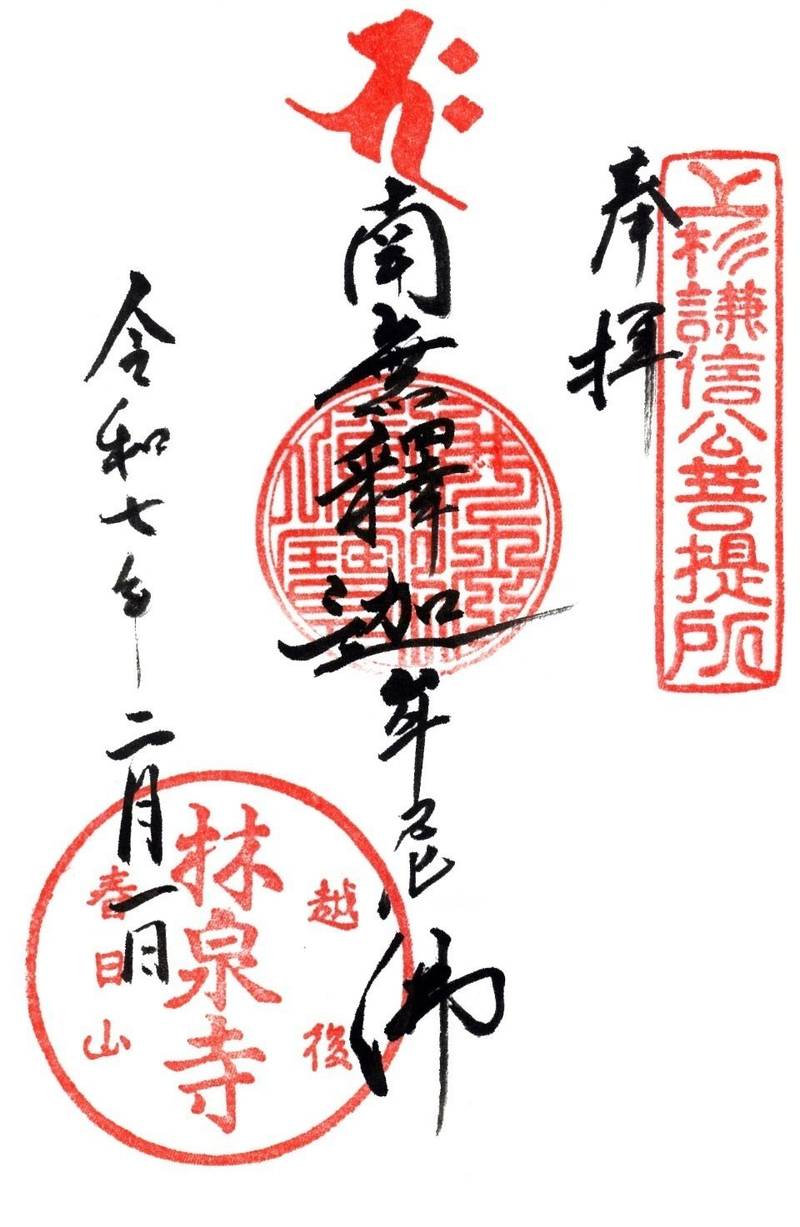 奉拝
上杉謙信公菩提所
南無釋迦牟尼佛
令和七年二月一日
越後
林泉寺
春日山